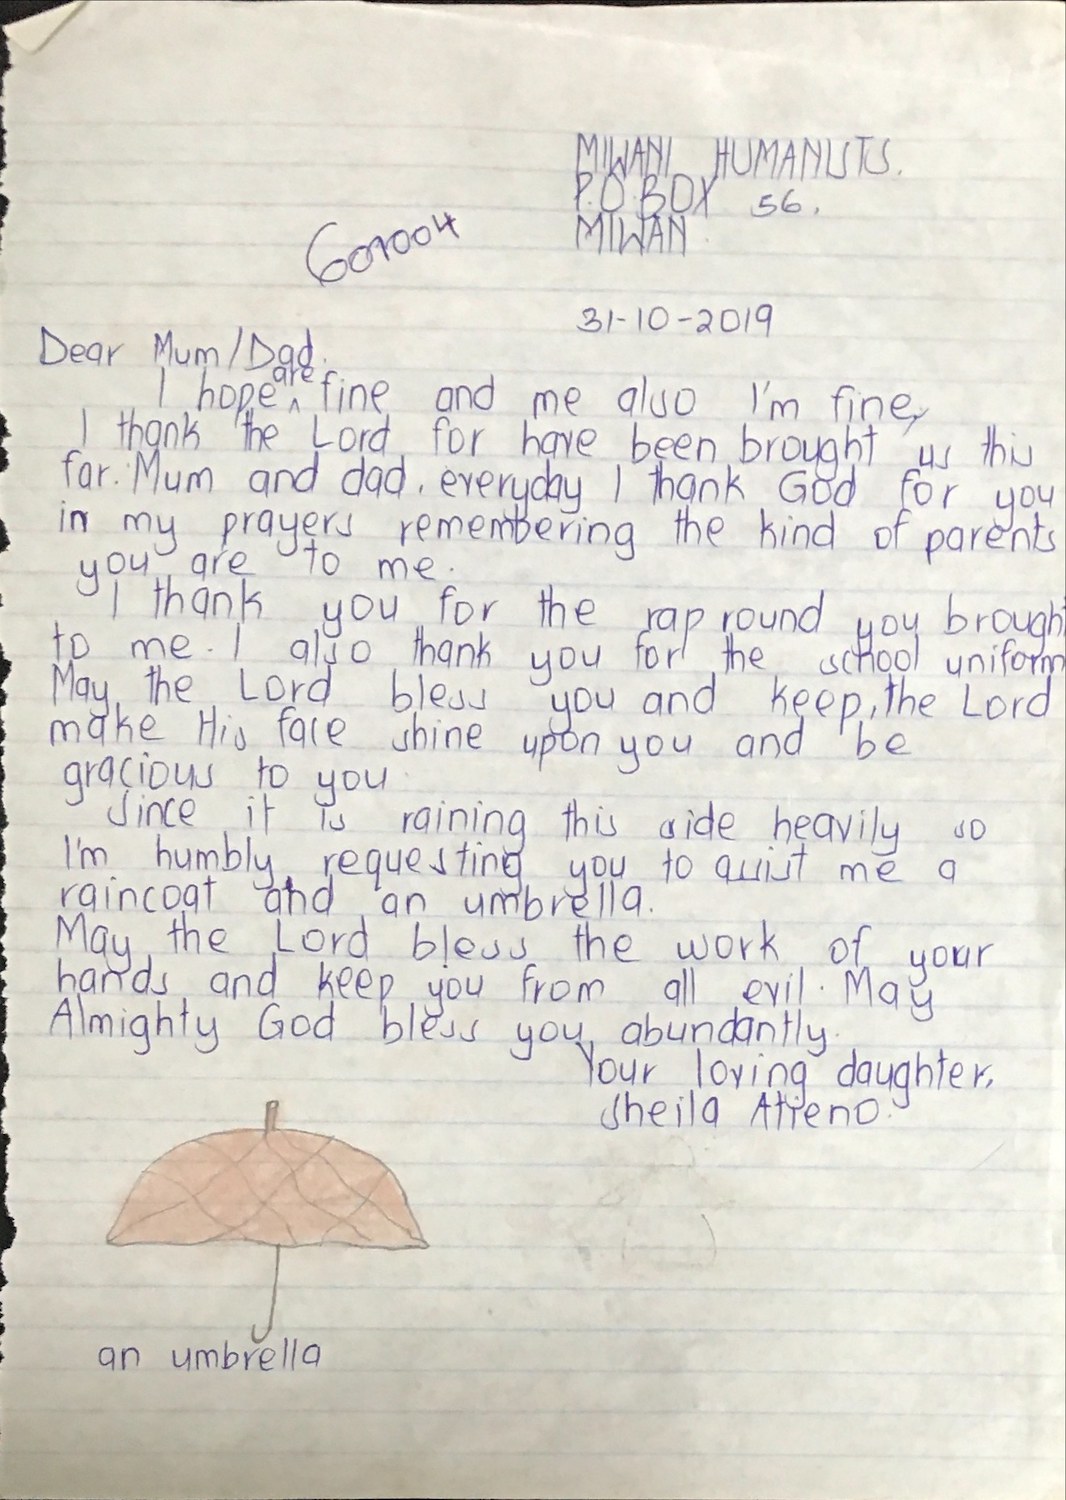 MIWANI HUMANISTS.
P.O.BOX 56.
MIWAN
31-10-2019
Dear Mum/Dad.
I hope are fine and me also I'm fine,
I thank the Lord for have been brought us this
far. Mum and dad, everyday I thank God for you
in my prayers remembering the kind of parents
you are to me.
I thank you for the rap round you brought
to me. I also thank you for the school uniform
May the Lord bless you and keep, the Lord
make His face shine upon you and be
gracious to you.
Since it is raining this side heavily so
I'm humbly requesting you to quist me a
raincoat and an umbrella.
May the Lord bless the work of your
hands and keep you from all evil. May
Almighty God bless you abundantly.
Your loving daughter,
Sheila Atieno.
an umbrella